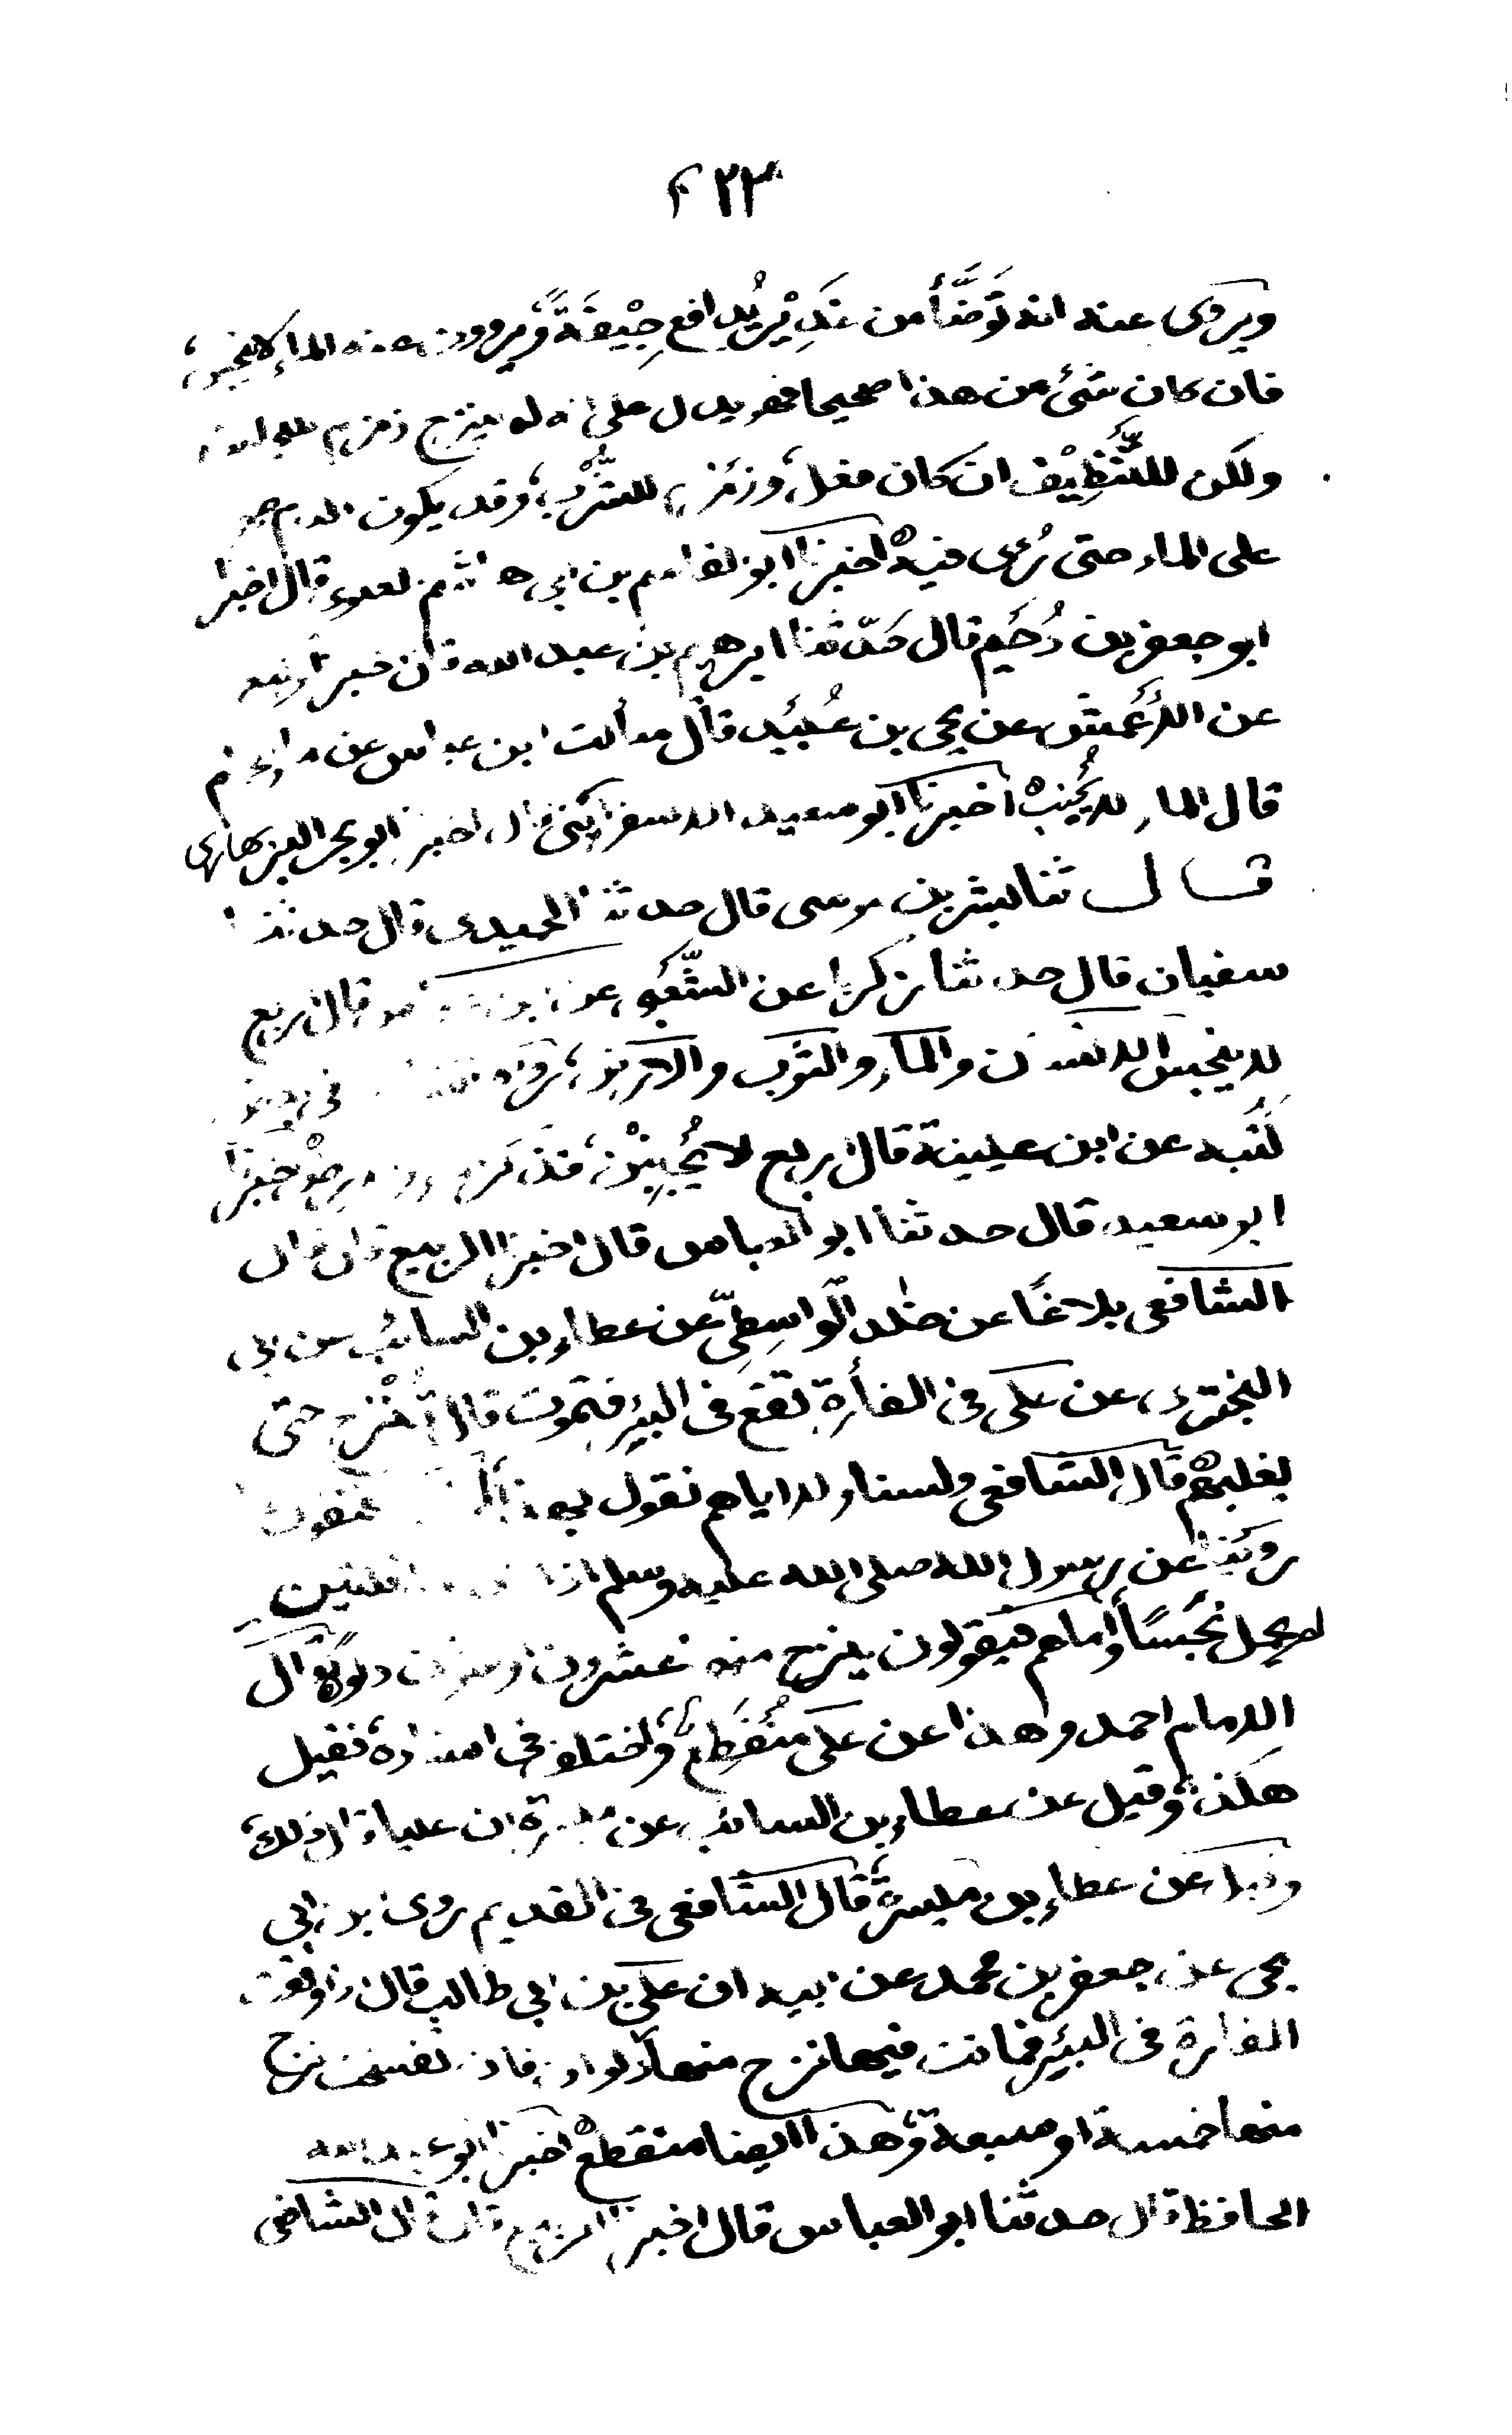 ٢٢٣
ويروى عنه انه تَوَضَّأ من غدير يُدافع جِيْفَةً ويروون عنه الماء لا ينجس،
فان كان شئ من هذا صحيحا فهو يدل على انه لم ينزح زمزم للنجاسة
ولكن للتَّنْظِيْف ان كان فعل، وزمزم للشُّرْب، وقد يكون الدم ظهر
على الماء حتى رُءى فيه اخبرنا ابو القاسم بن ابى هاشم العلوى قال اخبرنا
ابو جعفر بن دُحَيم قال حَدّثنا ابرهيم بن عبد الله قال اخبرنا وكيع
عن الأَعْمَش عن يحيى بن عُبَيد قال سألت ابن عباس عن ماء الحمام
قال الماء لا يُجْنِب اخبرنا ابو سعيد الاسفرائنى قال اخبرنا ابو بحر البربهارى
قال ثنا بشر بن موسى قال حدثنا الحميدى قال حدثنا
سفيان قال حدثنا زكريا عن الشَّعْبى عن ابن عباس قال اربع
لا ينجسن الانسان والماء والثَّوب والارض،
كُتُبه عن ابن عيينة قال اربع لا يُجْنِبْن، فذكرهن اخبرنا
ابو سعيد قال حدثنا ابو العباس قال اخبرنا الربيع قال قال
الشافعى بلاغًا عن خلد الْوَاسِطِىّ عن عطاء بن السائب عن ابى
البختری عن على فى الفأرة تقع فى البئر فتموت قال تُنْزَح حتى
يغلبهم قال الشافعى ولسنا ولا اياهم نقول بهذا نقول
روينا عن رسول الله صلى الله عليه وسلم اذا قلتين
لم يحمل نَجَسًا واما هم فيقولون ينزح منه عشرون او ثلثون دلوًا قال
الامام احمد وهذا عن على مُنْقَطِع، واختلف فى اسناده، فقيل
هكذا، وقيل عن عطاء بن السائب عن ميسرة ان عليا قال ذلك،
وقيل عن عطاء بن ميسرة، قال الشافعى فى القديم روى ابن ابى
يحيى عن جعفر بن محمد عن ابيه ان على بن ابى طالب قال اذا وقعت
الفارة فى البئر فماتت فيها نزح منها دلو او فان تفسخت نزح
منها خمسة او سبعة، وهذا ايضا منقطع اخبرنا ابو عبد الله
الحافظ قال حدثنا ابو العباس قال اخبرنا الربيع قال قال الشافعى